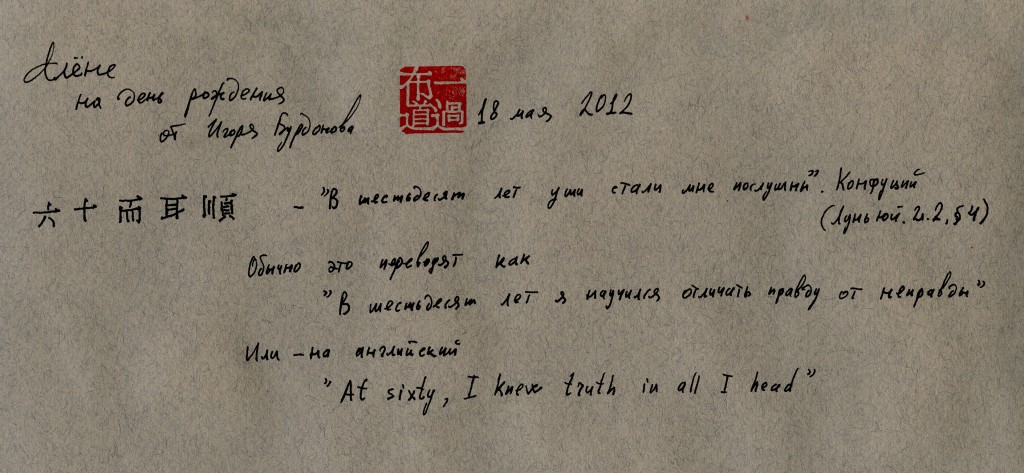 Алёне
на день рождения
от Игоря Бурдонова
布一道過
18 мая 2012
六十而耳順 – "В шестьдесят лет уши стали мне послушны". Конфуций
(Луньюй. гл.2, §4)
Обычно это переводят как
"В шестьдесят лет я научился отличать правду от неправды"
Или – на английский
"At sixty, I knew truth in all I head"